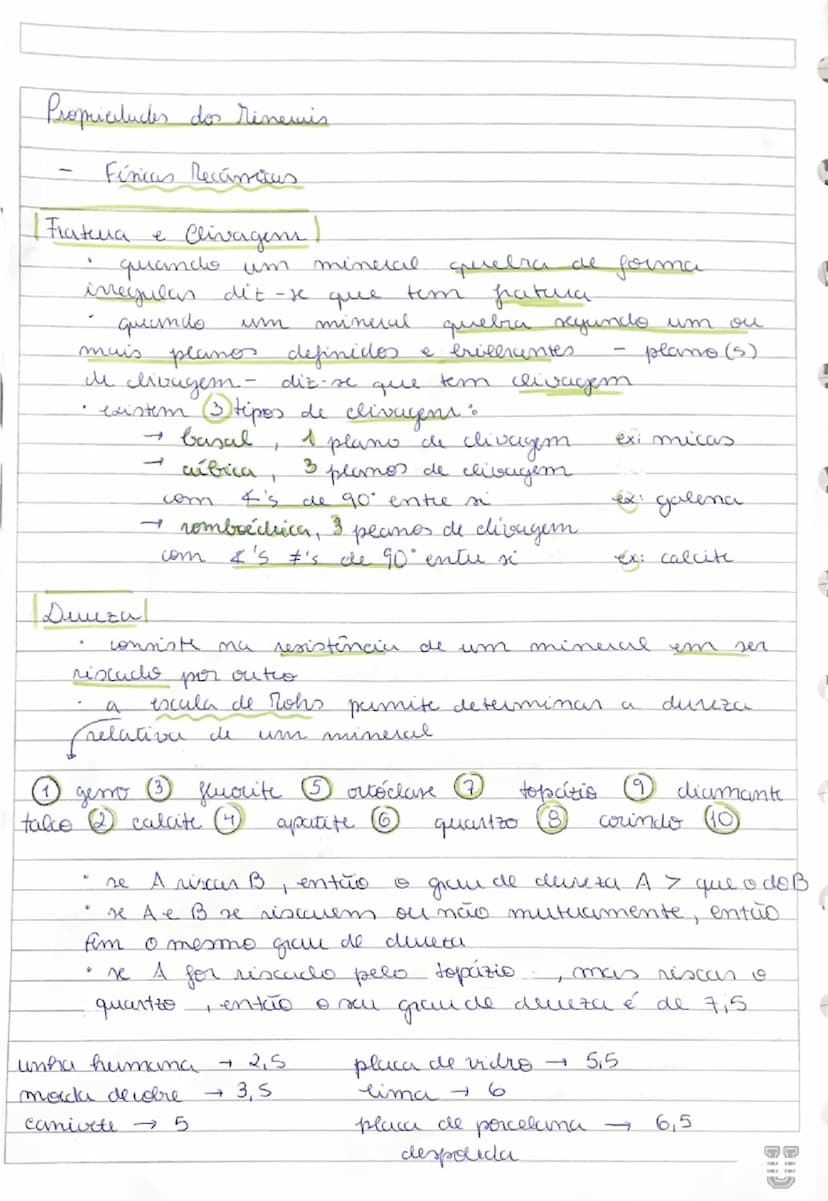 Propriedades dos Minerais
- Físicas Mecânicas
Fratura e Clivagem
· quando um mineral quebra de forma
irregular diz-se que tem fratura
· quando um mineral quebra segundo um ou
mais planos definidos e brilhantes - plano(s)
de clivagem - diz-se que tem clivagem
· existem 3 tipos de clivagem:
→ basal, 1 plano de clivagem ex: micas
→ cúbica, 3 planos de clivagem
com ∡'s de 90° entre si ex: galena
→ romboédrica, 3 planos de clivagem
com ∡'s ≠'s de 90° entre si ex: calcite
Dureza
· consiste na resistência de um mineral em ser
riscado por outro
· a escala de Mohs permite determinar a dureza
relativa de um mineral
① gesso ③ fluorite ⑤ ortóclase ⑦ topázio ⑨ diamante
talco ② calcite ④ apatite ⑥ quartzo ⑧ corindo ⑩
· se A riscar B, então o grau de dureza A > que o do B
· se A e B se riscarem ou não mutuamente, então
têm o mesmo grau de dureza
· se A for riscado pelo topázio, mas riscar o
quartzo, então o seu grau de dureza é de 7,5
unha humana → 2,5 placa de vidro → 5,5
moeda de cobre → 3,5 lima → 6
canivete → 5 placa de porcelana → 6,5
despolida